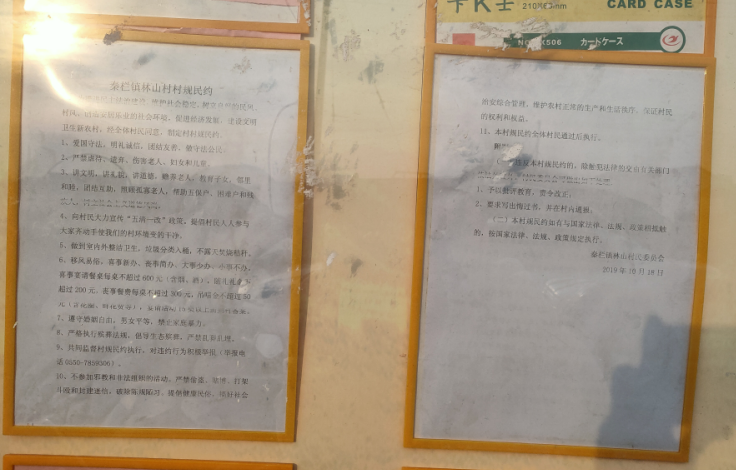 卡K士 210×6 mm CARD CASE
NO. K506 カートケース
秦栏镇林山村村规民约
村风，
卫生新农村，经全体村民同意，制定村规民约。
1、爱国守法，明礼诚信，团结友善，敬守法公民。
2、严禁虐待、遗弃、伤害老人、妇女和儿童。
3、讲文明，讲礼貌，讲道德，赡养老人，教育子女，邻里
和睦，团结互助，照顾孤寡老人，帮助五保户、困难户和残
4、向村民大力宣传“五清一改”政策，提倡村民人人参与
大家齐动手使我们的村环境变的干净。
5、做到室内外整洁卫生，垃圾分类入桶，不露天焚烧秸秆。
6、移风易俗，喜事新办、丧事简办、大事少办、小事不办。
喜事宴请餐桌每桌不超过600元
超过200元，丧事餐费每桌不超过300元，
7、遵守婚姻自由，男女平等，禁止家庭暴力。
8、严格执行殡葬法规，倡导生态殡葬，严禁乱葬乱埋。
9、共同监督村规民约执行，对违约行为积极举报（举报电
话0550-7859306）。
10、不参加邪教和非法组织的活动，严禁偷盗、赌博、打架
斗殴和封建迷信，破除陈规陋习，提倡健康民俗，做好社会
治安综合管理，维护农村正常的生产和生活秩序，保证村民
的权利和权益。
11、本村规民约全体村民通过后执行。
1、予以批评教育，责令改正。
2、要求写出悔过书，并在村内通报。
（二）本村规民约如有与国家法律、法规、政策相抵触
的，按国家法律、法规、政策规定执行。
秦栏镇林山村民委员会
2019年10月18日